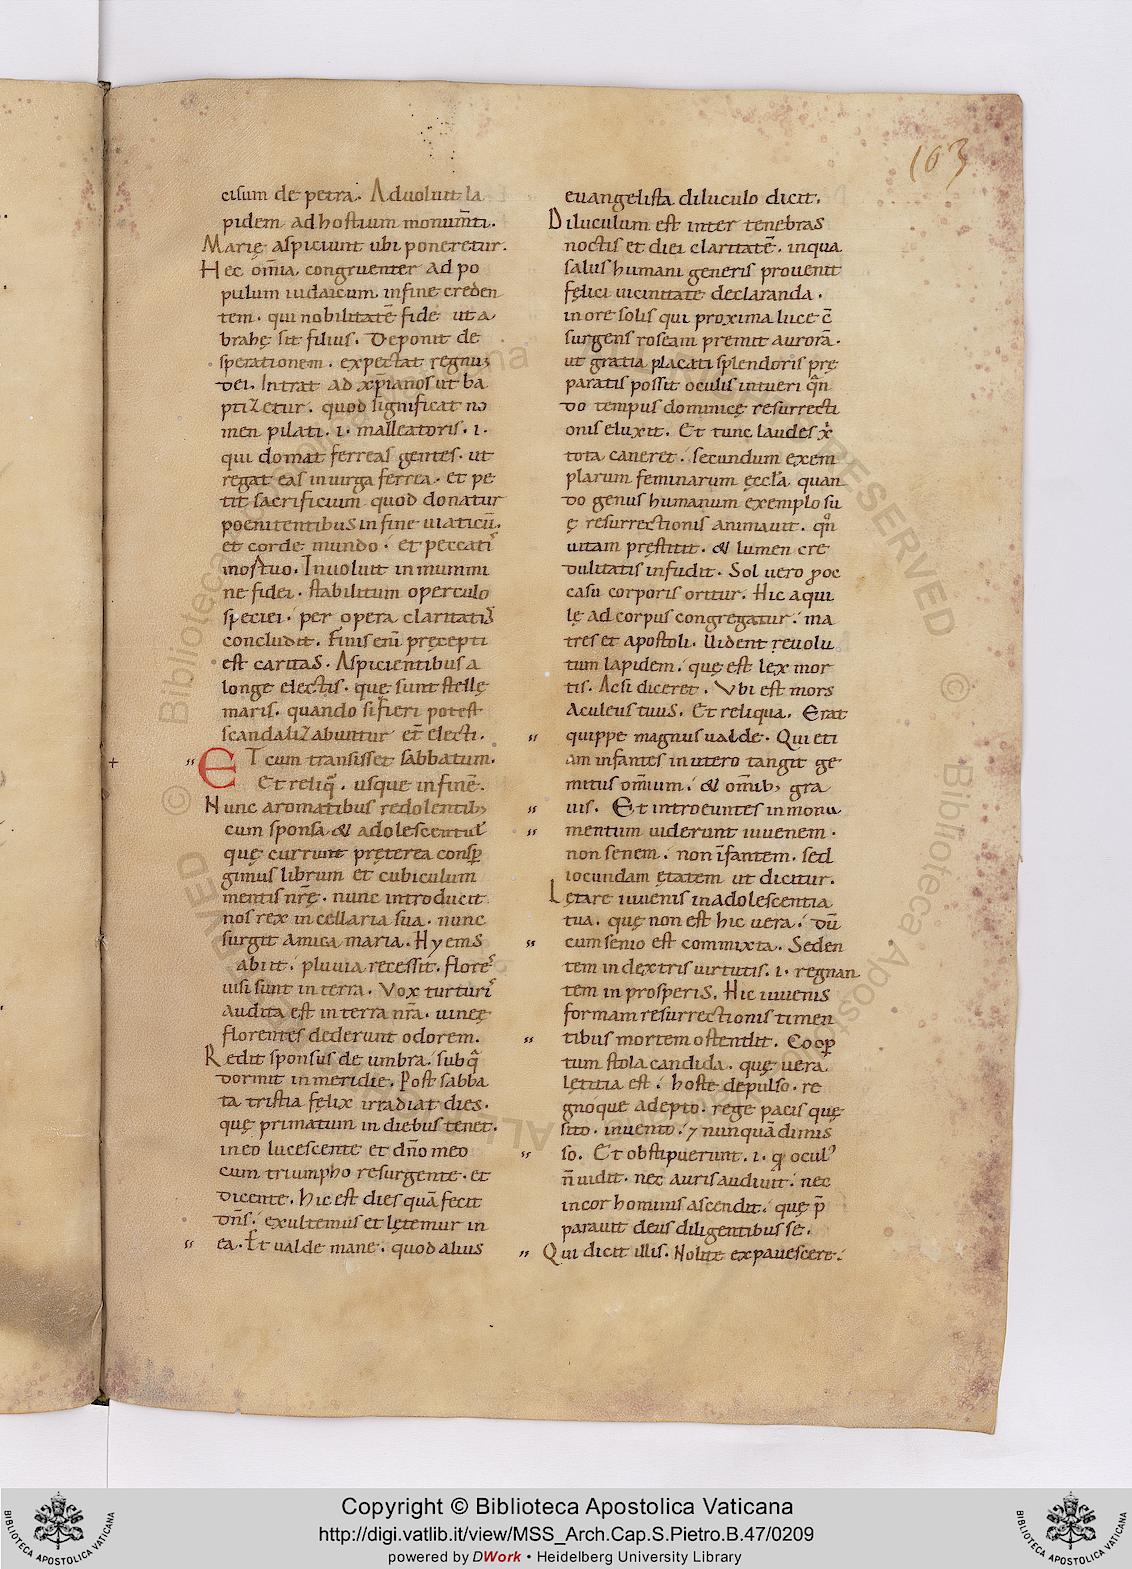 103
cisum de petra. Advoluit la
pidem ad hostium monum̅ti.
Marię aspiciunt ubi poneretur.
Hec om̅ia. congruenter ad po
pulum iudaicum. in fine creden
tem. qui nobilitate̅ fide ut a
brahę sit filius. Deponit de
sperationem. expectat regnu;
dei. Intrat ad xp̅ianos ut ba
ptizetur. quod significat no
men pilati. i. malleatoris. i.
qui domat ferreas gentes. ut
regat eas in virga ferrea. et pe
tit sacrificium quod donatur
poenitentibus in fine viaticu̅.
et corde mundo. et peccati
mortuo. Involvit in mummi
ne fidei. stabilitum operculo
speciei. per opera claritatis
concludit. Finis eni̅ pręcepti
est caritas. Aspicientibus a
longe electis. quę sunt stellę
maris. quando si fieri potest
scandalizabuntur et̅ electi.
ET cum transisset sabbatum.
Et reliq̅. usque in fine̅.
Nunc aromatibus redolentib;
cum sponsa & adolescentul
quę currunt pręterea consp̅
gimus librum et cubiculum
mentis nr̅ę. nunc introducit
nos rex in cellaria sua. nunc
surget amica maria. Hyems
abiit. pluvia recessit. flore
visi sunt in terra. Vox turturi
audita est in terra nr̅a. vineę
florentes dederunt odorem.
Redit sponsus de umbra. sub q̅
dormit in meridie. Post sabba
ta tristia felix irradiat dies.
quę primatum in diebus tenet.
in eo lucescente et dn̅o meo
cum triumpho resurgente. et
dicente. hic est dies qua̅ fecit
dn̅s. exultemus et lętemur in
ea. Et valde mane. quod alius
evangelista diluculo dicit.
Diluculum est inter tenebras
noctis et diei claritate̅. in qua
salus humani generis provenit
felici vicinitate declaranda.
in ore solis qui proxima luce e̅
surgens roseam premit aurora̅.
ut gratia placati splendoris prę
paratis possit oculis intueri qn̅
do tempus dominicę resurrecti
onis eluxit. Et tunc laudes x̅
tota caneret. secundum exem
plarum feminarum ęccl̅a. quan
do genus humanum exemplo su
ę resurrectionis animavit. qn̅
vitam pręstitit. & lumen cre
dulitatis infudit. Sol vero p oc
casu corporis oritur. Hic aqui
lę ad corpus congregatur. ma
tres et apostoli. Vident revolu
tum lapidem. quę est lex mor
tis. Acsi diceret. Ubi est mors
aculeus tuus. Et reliqua. Erat
quippe magnus valde. Qui eti
am infantes in utero tangit ge
mitus om̅ium. & om̅ib; gra
vis. Et introeuntes in monu
mentum viderunt iuvenem.
non senem. non i̅fantem. sed
iocundam ętatem ut dicitur.
Lętare iuvenis in adolescentia
tua. quę non est hic vera. du̅
cum senio est commixta. Seden
tem in dextris virtutis. i. regnan
tem in prosperis. Hic iuvenis
formam resurrectionis timen
tibus mortem ostendit. Coop
tum stola candida. quę vera
lętitia est. hoste depulso. re
gnoque adepto. rege pacis quę
sito. invento. 7 nunqua̅ dimis
so. Et obstipuerunt. i. q ocul
n̅ vidit. nec auris audivit. nec
in cor hominis ascendit. quę p̅
paravit deus diligentibus se.
Qui dicit illis. Nolite expavescere.
Copyright © Biblioteca Apostolica Vaticana
http://digi.vatlib.it/view/MSS_Arch.Cap.S.Pietro.B.47/0209
powered by DWork • Heidelberg University Library
BIBLIOTECA APOSTOLICA VATICANA
BIBLIOTECA APOSTOLICA VATICANA